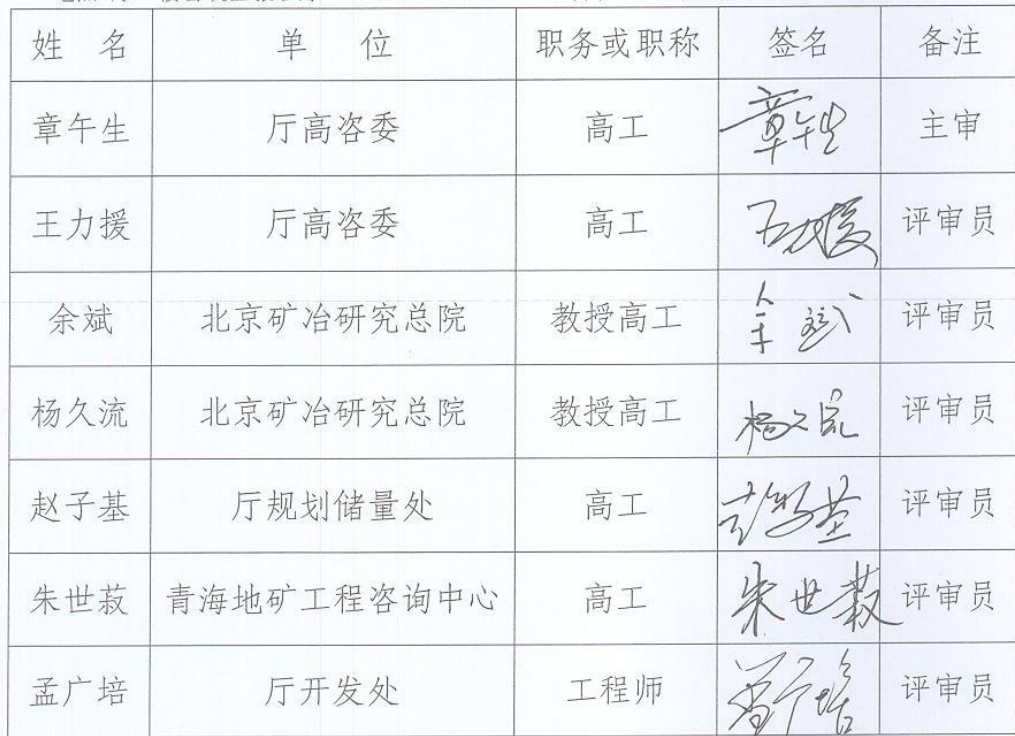 姓 名 单 位 职务或职称 签名 备注
章午生 厅高咨委 高工 章午生 主审
王力援 厅高咨委 高工 王力援 评审员
余斌 北京矿冶研究总院 教授高工 余斌 评审员
杨久流 北京矿冶研究总院 教授高工 杨久流 评审员
赵子基 厅规划储量处 高工 赵子基 评审员
朱世菽 青海地矿工程咨询中心 高工 朱世菽 评审员
孟广培 厅开发处 工程师 孟广培 评审员